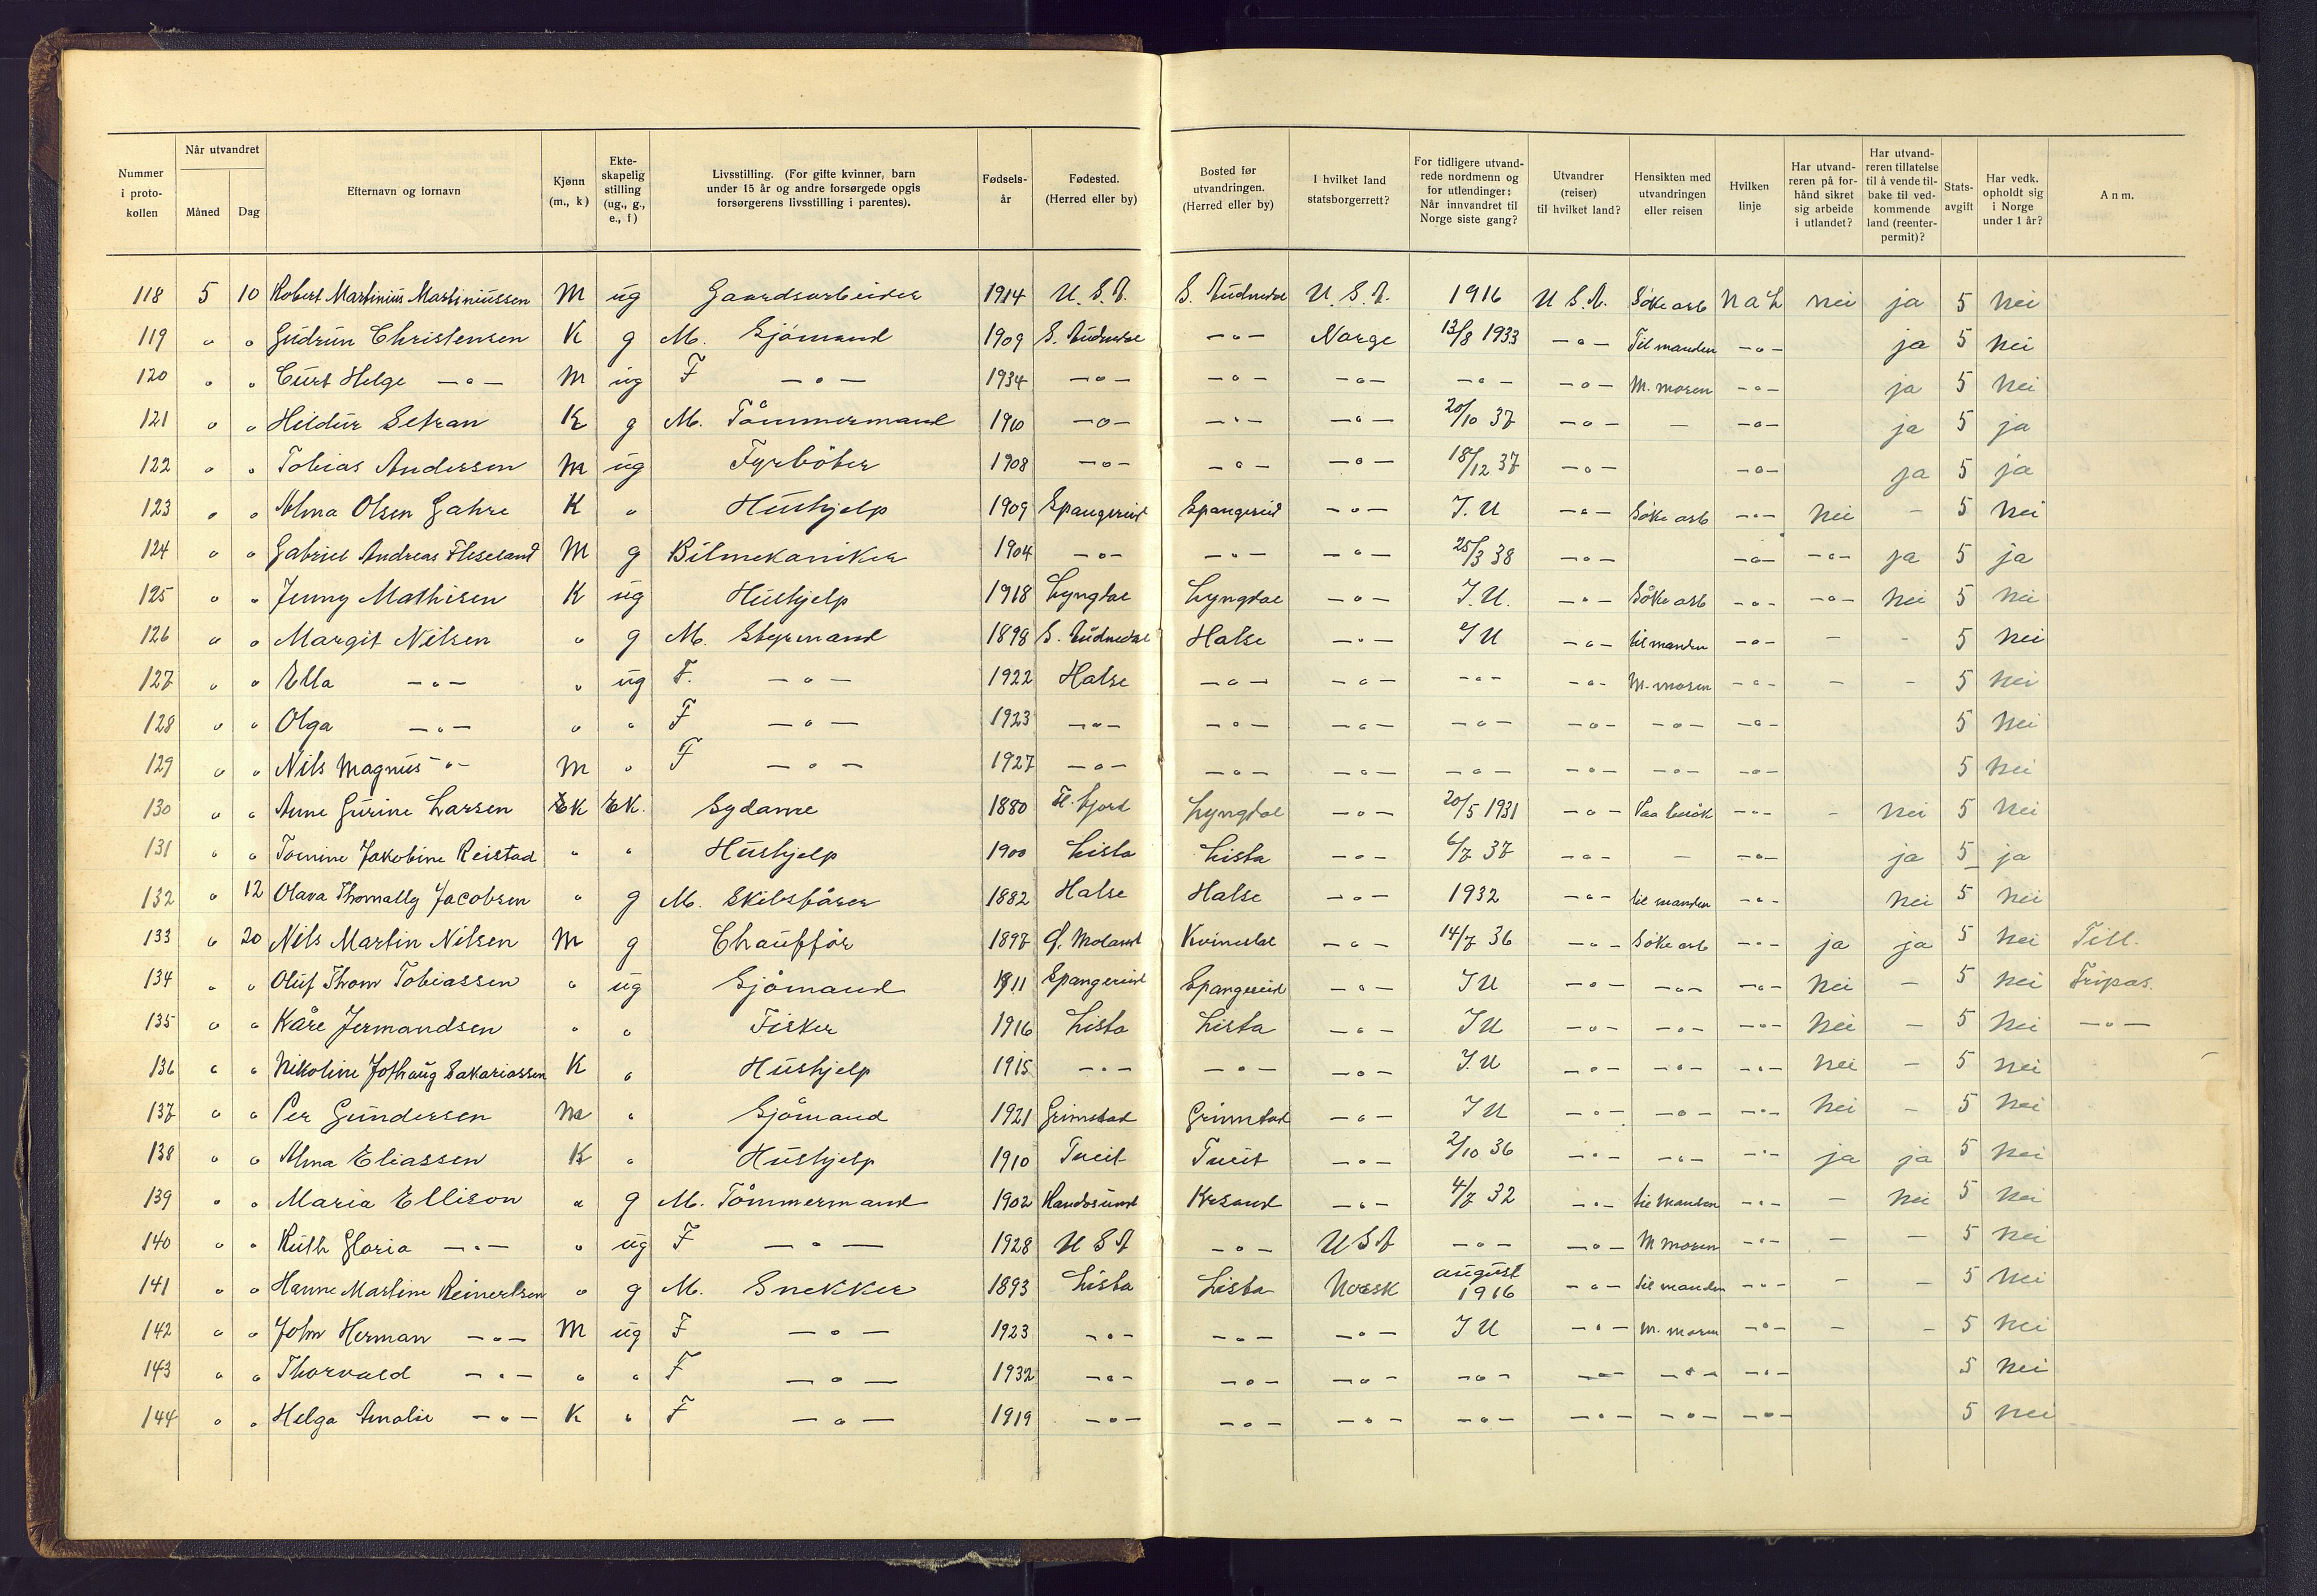 Nummer i protokollen | Når utvandret Måned | Dag | Efternavn og fornavn | Kjønn (m., k) | Ekteskapelig stilling (ug., g., e., f) | Livsstilling. (For gifte kvinner, barn under 15 år og andre forsørgede opgis forsørgerens livsstilling i parentes). | Fødselsår | Fødested. (Herred eller by) | Bosted før utvandringen. (Herred eller by) | I hvilket land statsborgerrett? | For tidligere utvandrede nordmenn og for utlendinger: Når innvandret til Norge siste gang? | Utvandrer (reiser) til hvilket land? | Hensikten med utvandringen eller reisen | Hvilken linje | Har utvandreren på forhånd sikret sig arbeide i utlandet? | Har utvandreren tillatelse til å vende tilbake til vedkommende land (reenterpermit)? | Statsavgift | Har vedk. opholdt sig i Norge under 1 år? | Anm.
118 5 10 Robert Martinius Martiniussen M ug Gaardsarbeider 1914 U.S.A. S. Audnedal U.S.A. 1916 U.S.A. Søke arb N a L nei ja 5 Nei
119 " " Gudrun Christensen K g M. Sjømand 1909 S. Audnedal -"- Norge 13/8 1933 -"- Til manden -"- ja 5 Nei
120 " " Curt Helge -"- M ug F -"- 1934 -"- -"- -"- -"- -"- M. moren -"- ja 5 Nei
121 " " Hildur Setran K g M. Tømmermand 1910 -"- -"- -"- 20/10 37 -"- - -"- ja 5 ja
122 " " Tobias Andersen M ug Fyrbøter 1908 -"- -"- -"- 18/12 37 -"- -"- ja 5 ja
123 " " Alma Olsen Gahre K " Hushjelp 1909 Spangereid Spangereid -"- I.U -"- Søke arb -"- Nei - 5 Nei
124 " " Gabriel Andreas Fleseland M g Bilmekaniker 1904 -"- -"- -"- 25/3 38 -"- -"- -"- ja 5 ja
125 " " Jenny Mathisen K ug Hushjelp 1918 Lyngdal Lyngdal -"- I.U. -"- Søke arb -"- -"- Nei 5 Nei
126 " " Margit Nilsen " g M. Styrmand 1898 S. Audnedal Halse -"- I U -"- til manden -"- - - 5 Nei
127 " " Ella -"- " ug F. -"- 1922 Halse -"- -"- -"- -"- M. moren -"- - - 5 Nei
128 " " Olga -"- " " F -"- 1923 -"- -"- -"- -"- -"- -"- -"- 5 Nei
129 " " Nils Magnus -"- M " F -"- 1927 -"- -"- -"- -"- -"- -"- -"- 5 Nei
130 " " Anne Gurine Larsen K EK. Sydame 1880 Fl. fjord Lyngdal -"- 20/5 1931 -"- Paa besøk -"- - Nei 5 Nei
131 " " Tomine Jakobine Reistad " " Hushjelp 1900 Lista Lista -"- 6/7 37 -"- - -"- ja 5 ja
132 " 12 Olava Thomally Jacobsen " g M. Skibsfører 1882 Halse Halse -"- 1932 -"- til manden -"- Nei 5 Nei
133 " 20 Nils Martin Nilsen M g Chauffør 1897 Ø. Moland Kvinesdal -"- 14/7 36 -"- Søke arb -"- ja ja 5 Nei Till.
134 " " Oluf Thom Tobiassen " ug Sjømand 1911 Spangereid Spangereid -"- I U -"- -"- -"- Nei - 5 Nei Fripas.
135 " " Kåre Jermandsen " " Fisker 1916 Lista Lista -"- I U -"- -"- -"- Nei - 5 Nei -"-
136 " " Nikoline Jothaug Sakariassen K " Hushjelp 1915 -"- -"- -"- I.U -"- -"- -"- Nei - 5 Nei
137 " " Per Gundersen M " Sjømand 1921 Grimstad Grimstad -"- I U -"- -"- -"- Nei - 5 Nei
138 " " Alma Eliassen K " Hushjelp 1910 Tveit Tveit -"- 2/10 36 -"- -"- -"- ja ja 5 Nei
139 " " Maria Ellison " g M. Tømmermand 1902 Randøsund Krsand -"- 4/7 32 -"- til manden -"- - Nei 5 Nei
140 " " Ruth Gloria -"- " ug F -"- 1928 U S A -"- U S A -"- -"- M moren -"- - - 5 Nei
141 " " Hanne Martine Reinertsen " g M. Snekker 1893 Lista Lista Norsk august 1916 -"- til manden -"- - - 5 Nei
142 " " John Herman -"- M ug F -"- 1923 -"- -"- -"- I U -"- M. moren -"- - - 5 Nei
143 " " Thorvald -"- " " F -"- 1932 -"- -"- -"- -"- -"- -"- -"- 5 Nei
144 " " Helga Amalie -"- K " F -"- 1919 -"- -"- -"- -"- -"- -"- -"- 5 Nei